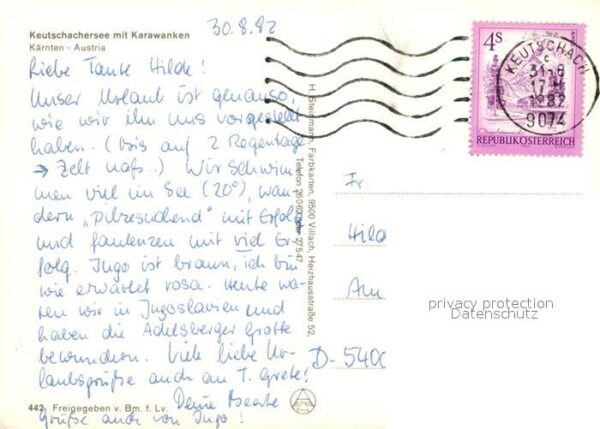 Keutschachersee mit Karawanken
Kärnten - Austria
30.8.82
Liebe Tante Hilde!
Unser Urlaub ist genauso,
wie wir ihn uns vorgestellt
haben. (bis auf 2 Regentage
→ Zelt naß..) Wir schwim-
men viel im See (20°), wan-
dern „Pilzesuchend" mit Erfolg
und faulenzen mit viel Er-
folg. Ingo ist braun, ich bin
wie erwartet rosa. Heute wa-
ren wir in Jugoslavien und
haben die Adelsberger Grotte
bewundern. Viele liebe Ur-
laubsgrüße auch an T. Grete!
Deine Beate
Grüße auch von Ingo!
442 Freigegeben v. Bm. f. Lv.
H. Steinmann, Farbkarten, 9500 Villach, Heizhausstraße 52,
4S
REPUBLIK ÖSTERREICH
KEUTSCHACH
31-8
1982
9074
Fr.
Hild
D-5400
privacy protection
Datenschutz